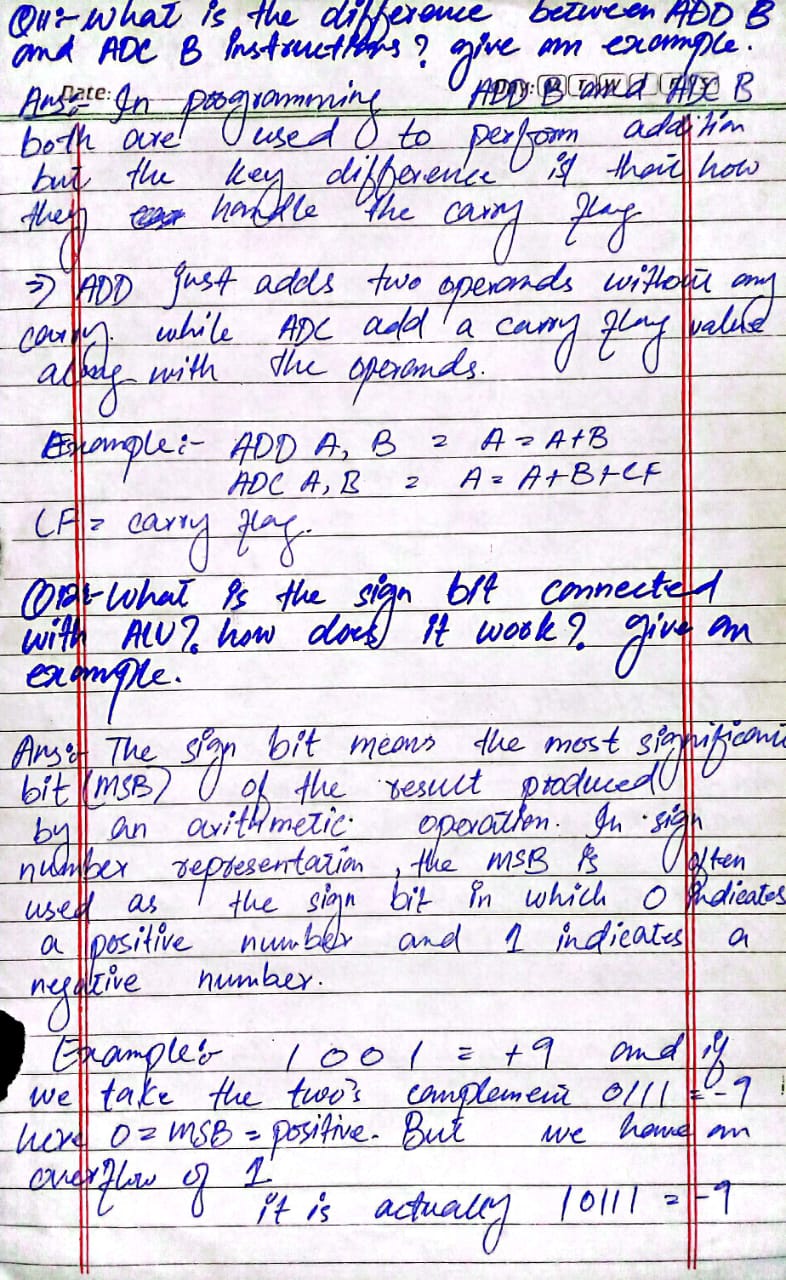 Q11:- What is the difference between ADD B
and ADC B instructions? give an example.
Date:
Ans:- In programming ADD B and ADC B
both are used to perform addition
but the key difference is that how
they handle the carry flag
=> ADD just adds two operands without any
carry. while ADC add a carry flag value
along with the operands.
Example:- ADD A, B = A = A+B
ADC A, B = A = A+B+CF
CF = carry flag.
Q12:- What is the sign bit connected
with ALU? how does it work? give an
example.
Ans:- The sign bit means the most significant
bit (MSB) of the result produced
by an arithmetic operation. In sign
number representation, the MSB is often
used as the sign bit in which 0 indicates
a positive number and 1 indicates a
negative number.
Example:- 1001 = +9 and if
we take the two's complement 0111 = -9
here 0 = MSB = positive. But we have an
overflow of 1
it is actually 10111 = -9